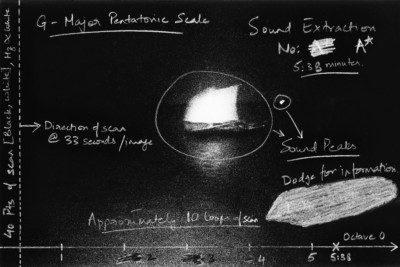 G - Major Pentatonic Scale
Sound Extraction
No: A*
5:38 minutes
40 Pts of scan [Black, White], Hz x White
Direction of scan
@ 33 seconds/image
Sound Peaks
Dodge for information
Approximately 10 loops of scan
Octave 0
1 4 5 5:38